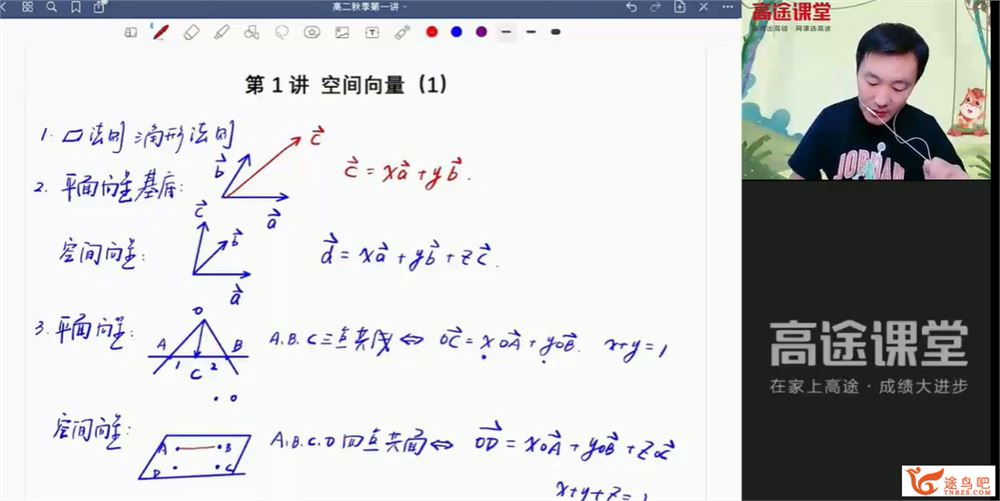 高二秋季第一讲
第 1 讲 空间向量（1）
1. ▱法则 三角形法则
b⃗ a⃗ c⃗
c⃗ = xa⃗ + yb⃗.
2. 平面向量基底:
空间向量:
c⃗ b⃗ a⃗
d⃗ = xa⃗ + yb⃗ + zc⃗.
3. 平面向量:
O A B 1 C 2
A.B.C三点共线 ⇔ OC⃗ = xOA⃗ + yOB⃗. x+y=1
空间向量:
O A B D C
A.B.C.D 四点共面 ⇔ OD⃗ = xOA⃗ + yOB⃗ + zOC⃗
x+y+z=1
高途课堂
JORDAN
高途课堂
在家上高途·成绩大进步
途鸟吧
TNBZS.COM